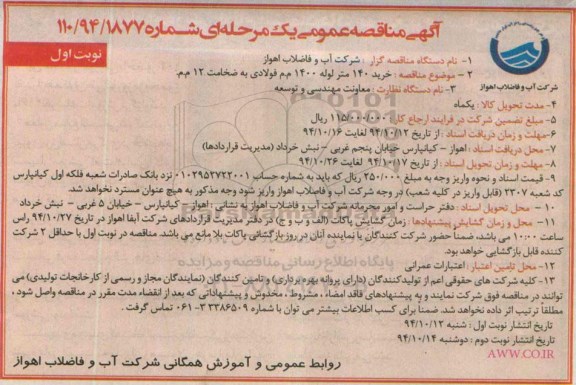 آگهی مناقصه عمومی یک مرحله‌ای شماره ۱۱۰/۹۴/۱۸۷۷
نوبت اول
شرکت آب و فاضلاب اهواز
۱- نام دستگاه مناقصه گزار : شرکت آب و فاضلاب اهواز
۲- موضوع مناقصه : خرید ۱۴۰ متر لوله ۱۴۰۰ م.م فولادی به ضخامت ۱۲ م.م.
۳- نام دستگاه نظارت : معاونت مهندسی و توسعه
۴- مدت تحویل کالا : یکماه
۵- مبلغ تضمین شرکت در فرایند ارجاع کار : ۱۱۵/۰۰۰/۰۰۰ ریال
۶- مهلت و زمان دریافت اسناد : از تاریخ ۹۴/۱۰/۱۲ لغایت ۹۴/۱۰/۱۶
۷- محل دریافت اسناد : اهواز - کیانپارس خیابان پنجم غربی - نبش خرداد (مدیریت قراردادها)
۸- مهلت و زمان تحویل اسناد : از تاریخ ۹۴/۱۰/۱۷ لغایت ۹۴/۱۰/۲۶
۹- قیمت اسناد و نحوه واریز وجه به مبلغ ۲۵۰/۰۰۰ ریال که باید به شماره حساب ۰۱۰۲۹۵۲۷۲۲۰۰۱ نزد بانک صادرات شعبه فلکه اول کیانپارس
کد شعبه ۲۳۰۷ (قابل واریز در کلیه شعب) در وجه شرکت آب و فاضلاب اهواز واریز شود وجه مذکور به هیچ عنوان مسترد نخواهد شد.
۱۰- محل تحویل اسناد : دفتر حراست و امور محرمانه شرکت آب و فاضلاب اهواز به نشانی : اهواز - کیانپارس - خیابان ۵ غربی - نبش خرداد
۱۱- محل و زمان گشایش پیشنهادها : زمان گشایش پاکات (الف و ب و ج) در دفتر مدیریت قراردادهای شرکت آبفا اهواز در تاریخ ۹۴/۱۰/۲۷ راس
ساعت ۱۰:۰۰ می باشد، ضمنا حضور شرکت کنندگان یا نماینده آنان در روز بازگشائی پاکات بلا مانع می باشد. مناقصه در نوبت اول با حداقل ۲ شرکت
کننده قابل بازگشایی خواهد بود.
۱۲- محل تامین اعتبار : اعتبارات عمرانی
۱۳- کلیه شرکت های حقوقی اعم از تولیدکنندگان (دارای پروانه بهره برداری) و تامین کنندگان (نمایندگان مجاز و رسمی از کارخانجات تولیدی) می
توانند در مناقصه فوق شرکت نمایند و به پیشنهادهای فاقد امضاء ، مشروط ، مخدوش و پیشنهاداتی که بعد از انقضاء مدت مقرر در مناقصه واصل شود ،
مطلقاً ترتیب اثر داده نخواهد شد. ضمناً برای کسب اطلاعات بیشتر می توان با شماره ۳۳۳۸۶۵۰۹-۰۶۱ تماس گرفت .
تاریخ انتشار نوبت اول : شنبه ۹۴/۱۰/۱۲
تاریخ انتشار نوبت دوم : دوشنبه ۹۴/۱۰/۱۴
روابط عمومی و آموزش همگانی شرکت آب و فاضلاب اهواز
AWW.CO.IR